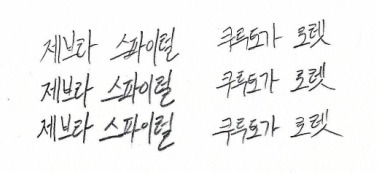 제브라 스파이럴 쿠루토가 로텟
제브라 스파이럴 쿠루토가 로텟
제브라 스파이럴 쿠루토가 로텟